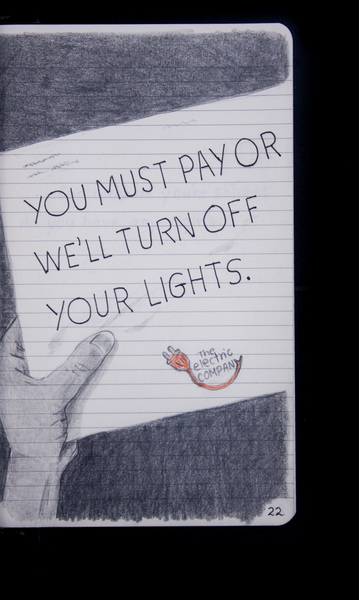 YOU MUST PAY OR
WE'LL TURN OFF
YOUR LIGHTS.
The
electric
COMPANY
22